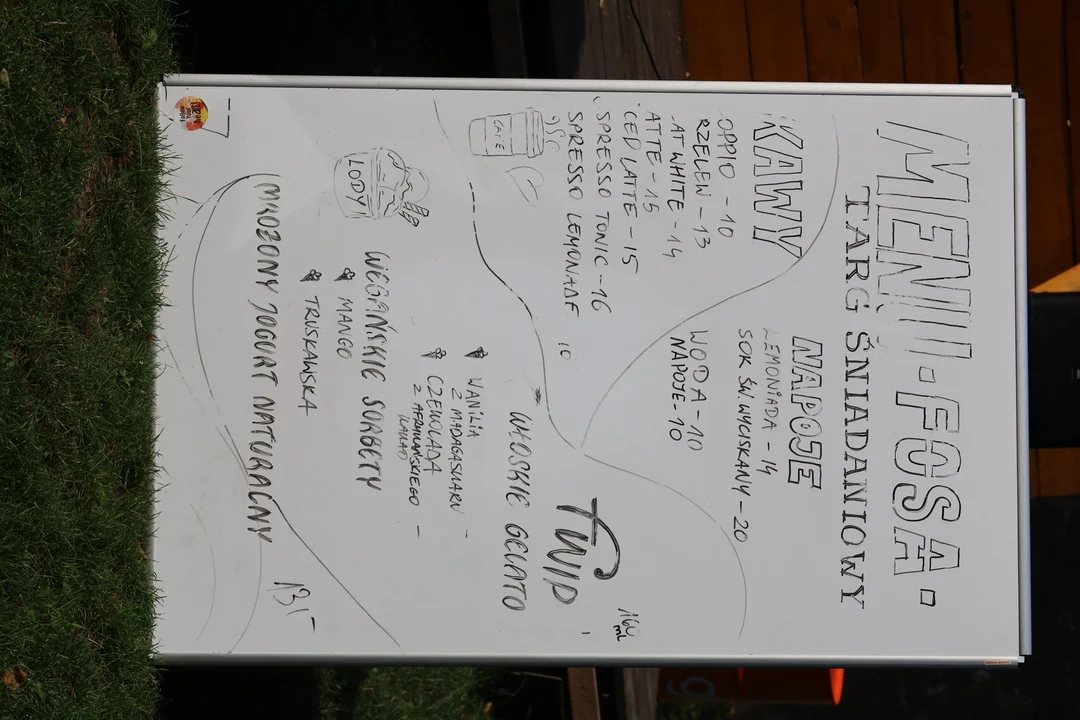 MENU · FCSA ·
TARG ŚNIADANIOWY
KAWY
OPPIO - 10
RZELEW - 13
AT WHITE - 14
ATTE - 15
CED LATTE - 15
SPRESSO TONIC - 16
SPRESSO LEMONADE
16
CAFE
NAPOJE
LEMONIADA - 14
SOK ŚW. WYCISKANY - 20
WODA - 10
NAPOJE - 10
160 ml
WŁOSKIE GELATO
WANILIA
Z MADAGASKARU -
CZEKOLADA
Z AFRYKAŃSKIEGO -
KAKAO
WEGAŃSKIE SORBETY
MANGO
TRUSKAWKA
LODY
MROŻONY JOGURT NATURALNY
13,-